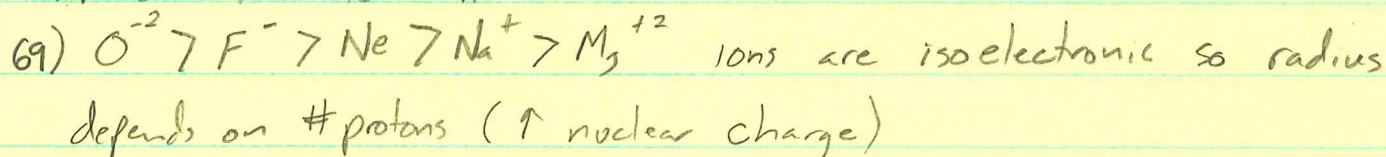 69) O⁻² > F⁻ > Ne > Na⁺ > Mg⁺² Ions are isoelectronic so radius
depends on # protons (↑ nuclear charge)